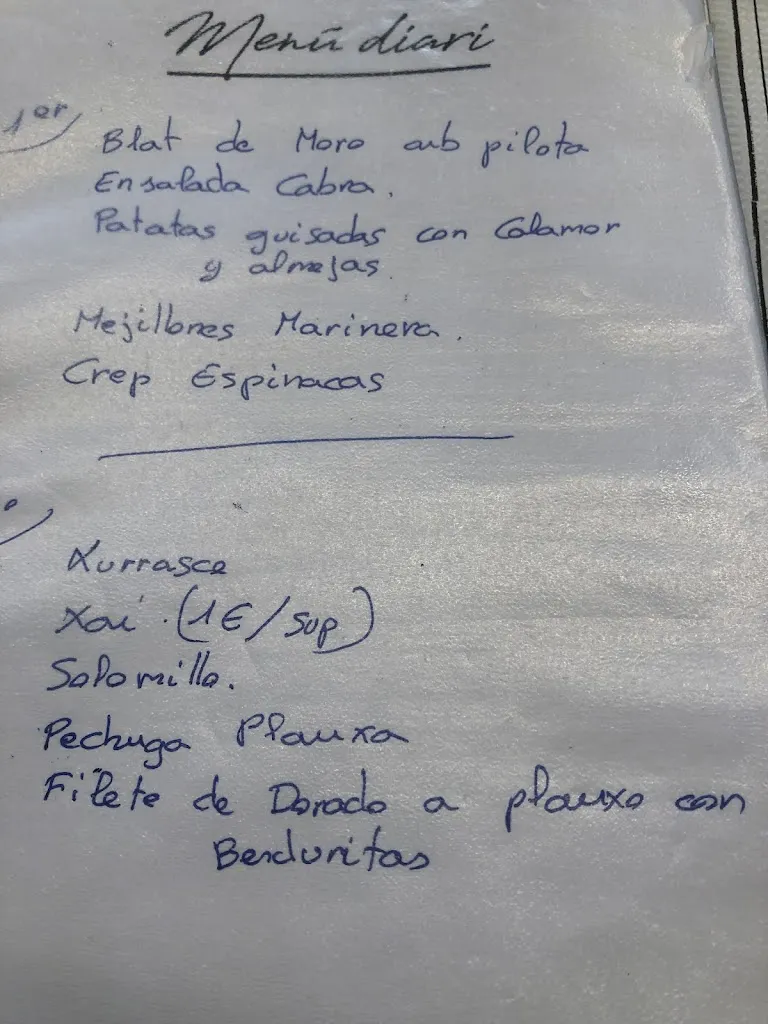 Menú diari
1er
Blat de Moro amb pilota
Ensalada Cabra.
Patatas guisadas con Calamar
y almejas.
Mejillones Marinera.
Crep Espinacas
Xurrasco
Xai. (1€/sup)
Solomillo.
Pechuga Planxa
Filete de Dorado a planxa con
Berduritas